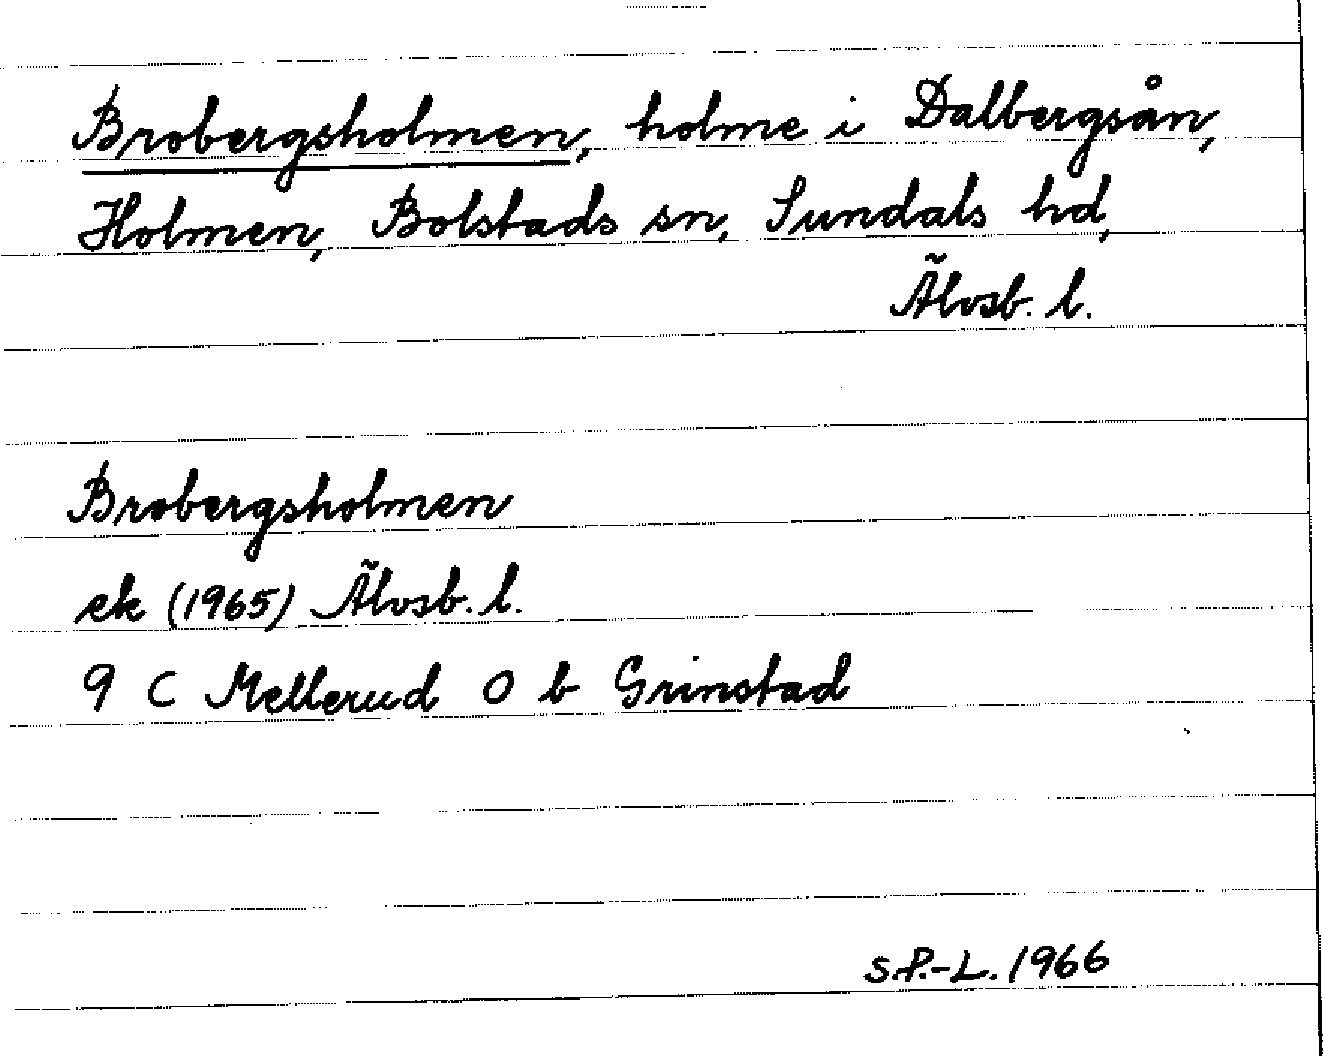 Brobergsholmen, holme i Dalbergsån,
Holmen, Bolstads sn, Sundals hd,
Älvsb. l.
Brobergsholmen
ek (1965) Älvsb. l.
9 C Mellerud O b Grinstad
S.P.-L. 1966